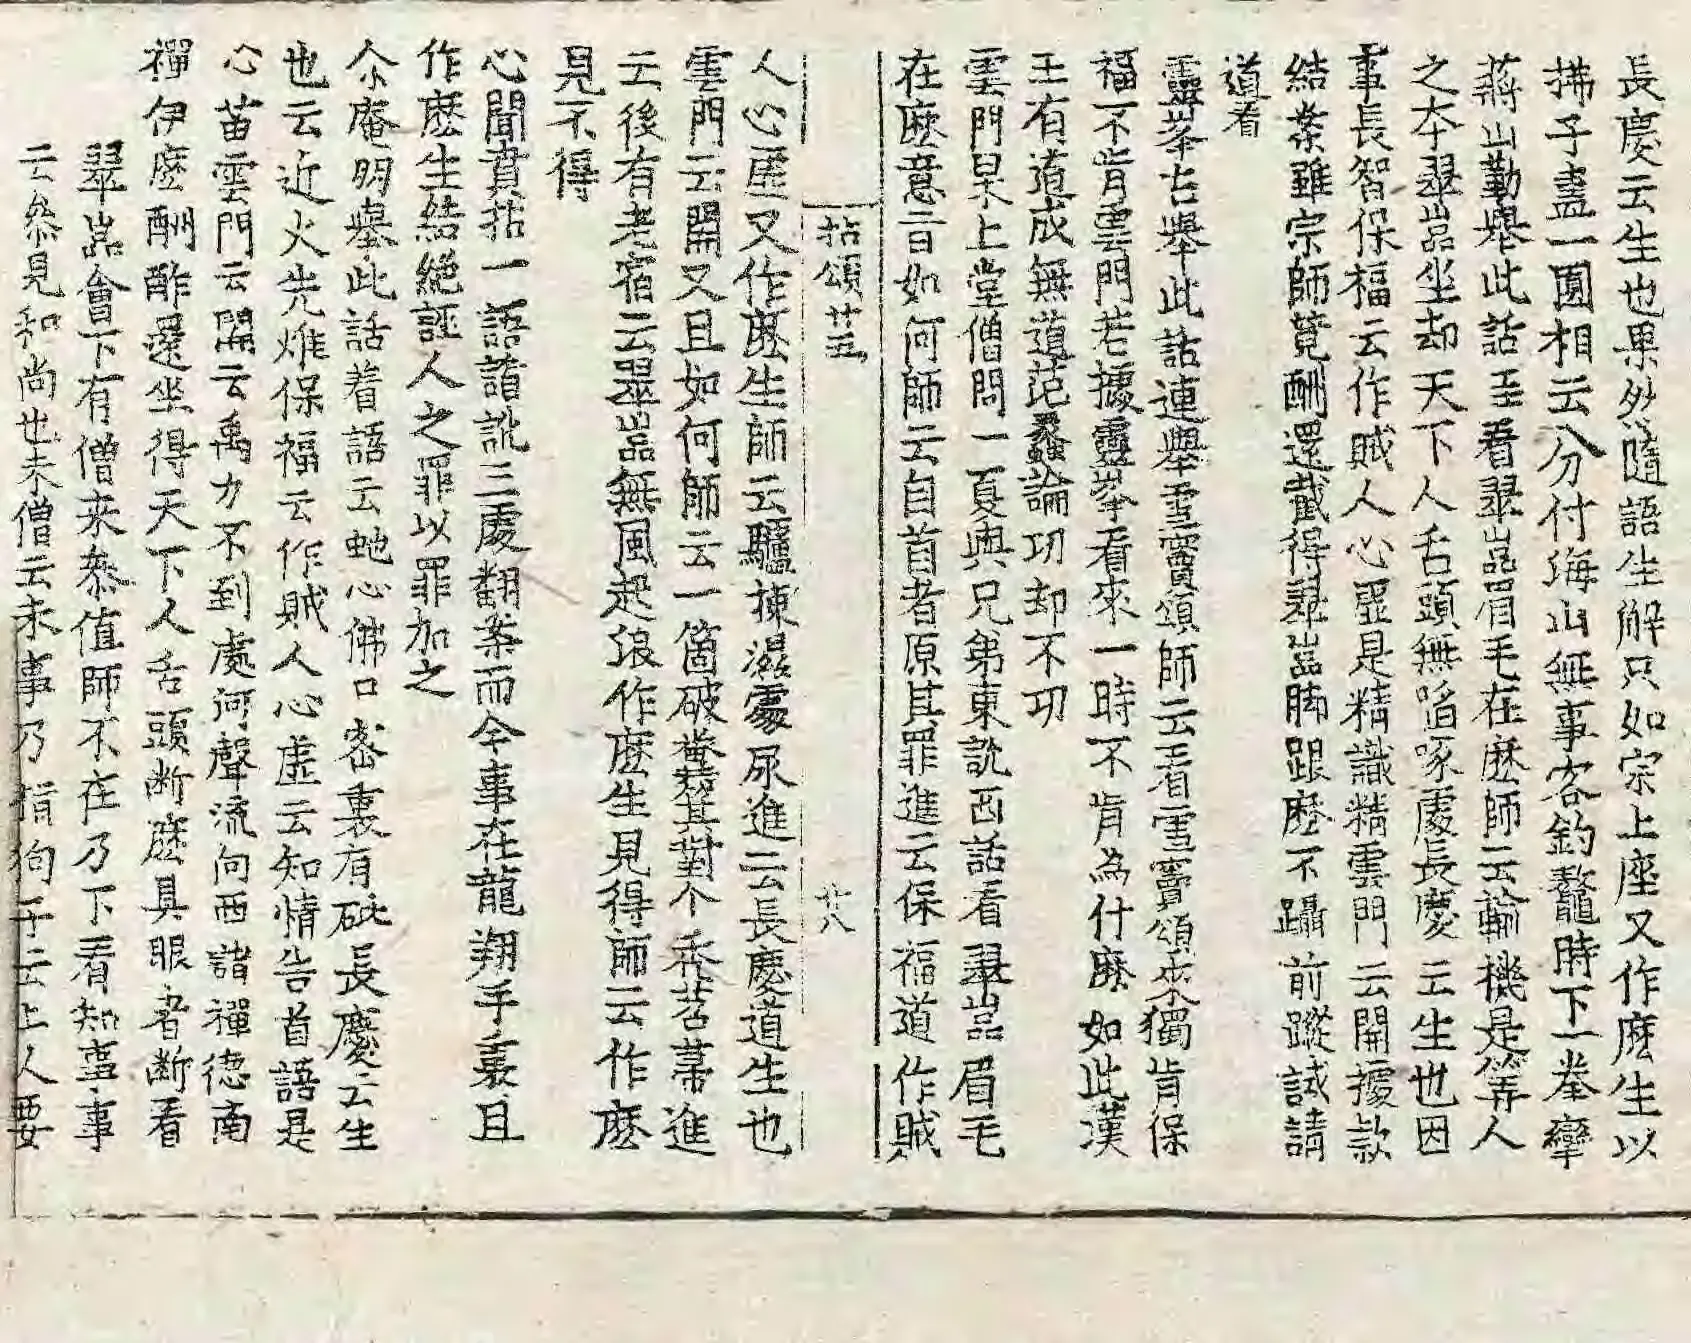 長慶云生也果然隨語生解只如宗上座又作麽生以
拂子盡一圓相云分付海山無事客釣鼇時下一拳攣
蔣山勤舉此話至看翠嵓眉毛在麽師云輸機是筭人
之本翠嵓坐却天下人舌頭無啗啄處長慶云生也因
事長智保福云作賊人心虛是精識精雲門云關據款
結案雖宗師竟酬還截得翠嵓脚跟麽不躡前蹤試請
道看
靈峯古擧此話連擧雪竇頌師云看雪竇頌來獨肯保
福不肯雲門若據靈峯看來一時不肯為什麽如此漢
王有道成無道范蠡論功却不功
雲門杲上堂僧問一夏與兄弟東說西話看翠嵓眉毛
在麽意旨如何師云自首者原其罪進云保福道作賊
拈頌廿五 廿八
人心虛又作麽生師云驢揀濕處尿進云長慶道生也
雲門云關又且如何師云一箇破糞箕對个禿苕帚進
云後有老宿云翠嵓無風起浪作麽生見得師云作麽
見不得
心聞賁拈一語誵訛三處翻案而今事在龍翔手裏且
作麽生結絕誣人之罪以罪加之
介庵明擧此話着語云虵心佛口密裏有砒長慶云生
也云近火先燋保福云作賊人心虛云知情告首語是
心苗雲門云關云禹力不到處河聲流向西諸禪德南
禪伊麽酬酢還坐得天下人舌頭斷麽具眼者斷看
翠嵓會下有僧来叅值師不在乃下看知事事
云叅見和尚也未僧云未事乃指狗子云上人要